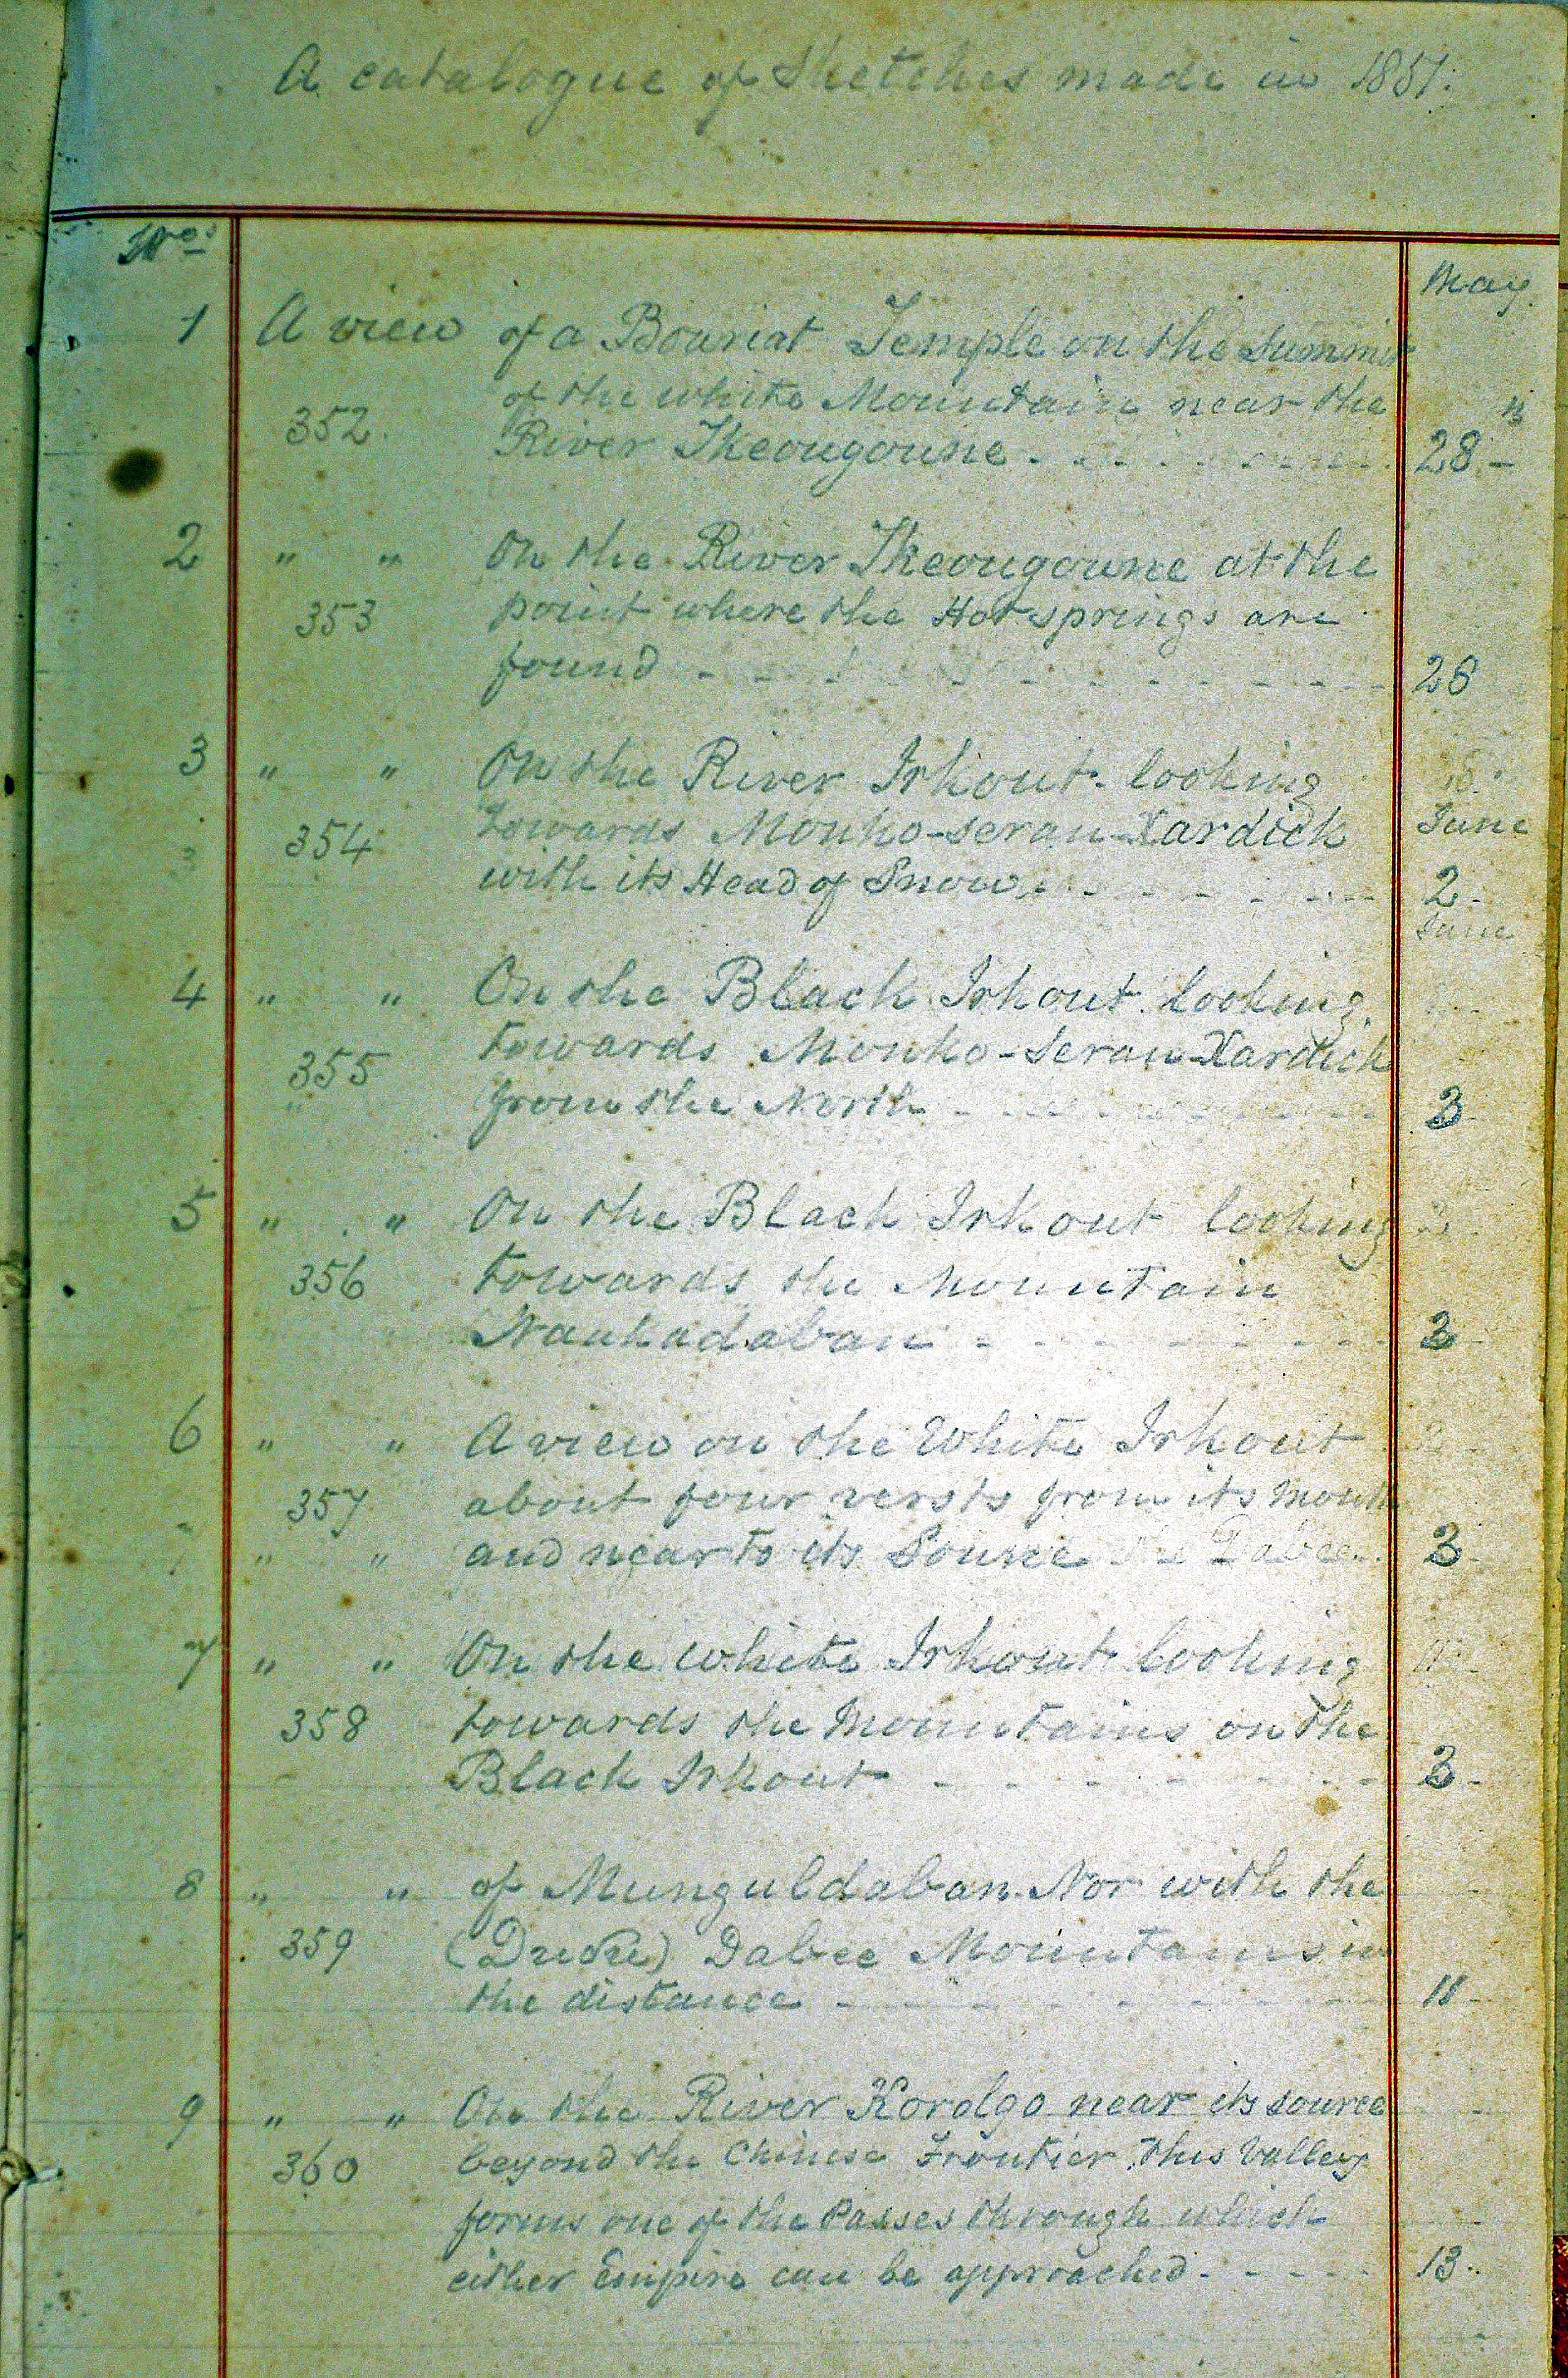 A catalogue of Sketches made in 1851.
Nos
May
1 A view of a Bouriat Temple on the Summit
of the white Mountain near the
352. River Ikeougoune - - - - - 28
2 " " On the River Ikeougoune at the
353 point where the Hot springs are
found - - - - - - - - - 28
3 " " On the River Irkout. looking
354 towards Monko-seran-Xardick June
with its Head of Snow - - - - - 2
June
4 " " On the Black Irkout. looking
355 towards Monko-Seran-Xardick
from the North - - - - - - 3
5 " " On the Black Irkout looking
356 towards the Mountain
Naukadaban - - - - - - 3
6 " " A view on the White Irkout
357 about four versts from its Mouth
" " and near to its Source 3
7 " " On the white Irkout looking
358 towards the Mountains on the
Black Irkout - - - - - - 3
8 " " of Munguldaban. Nor with the
359 Dabee Mountains in
the distance - - - - - - 11
9 " " On the River Korolgo near its source
360 beyond the Chinese Frontier, This Valley
forms one of the Passes through which
either Empire can be approached - - - - - 13